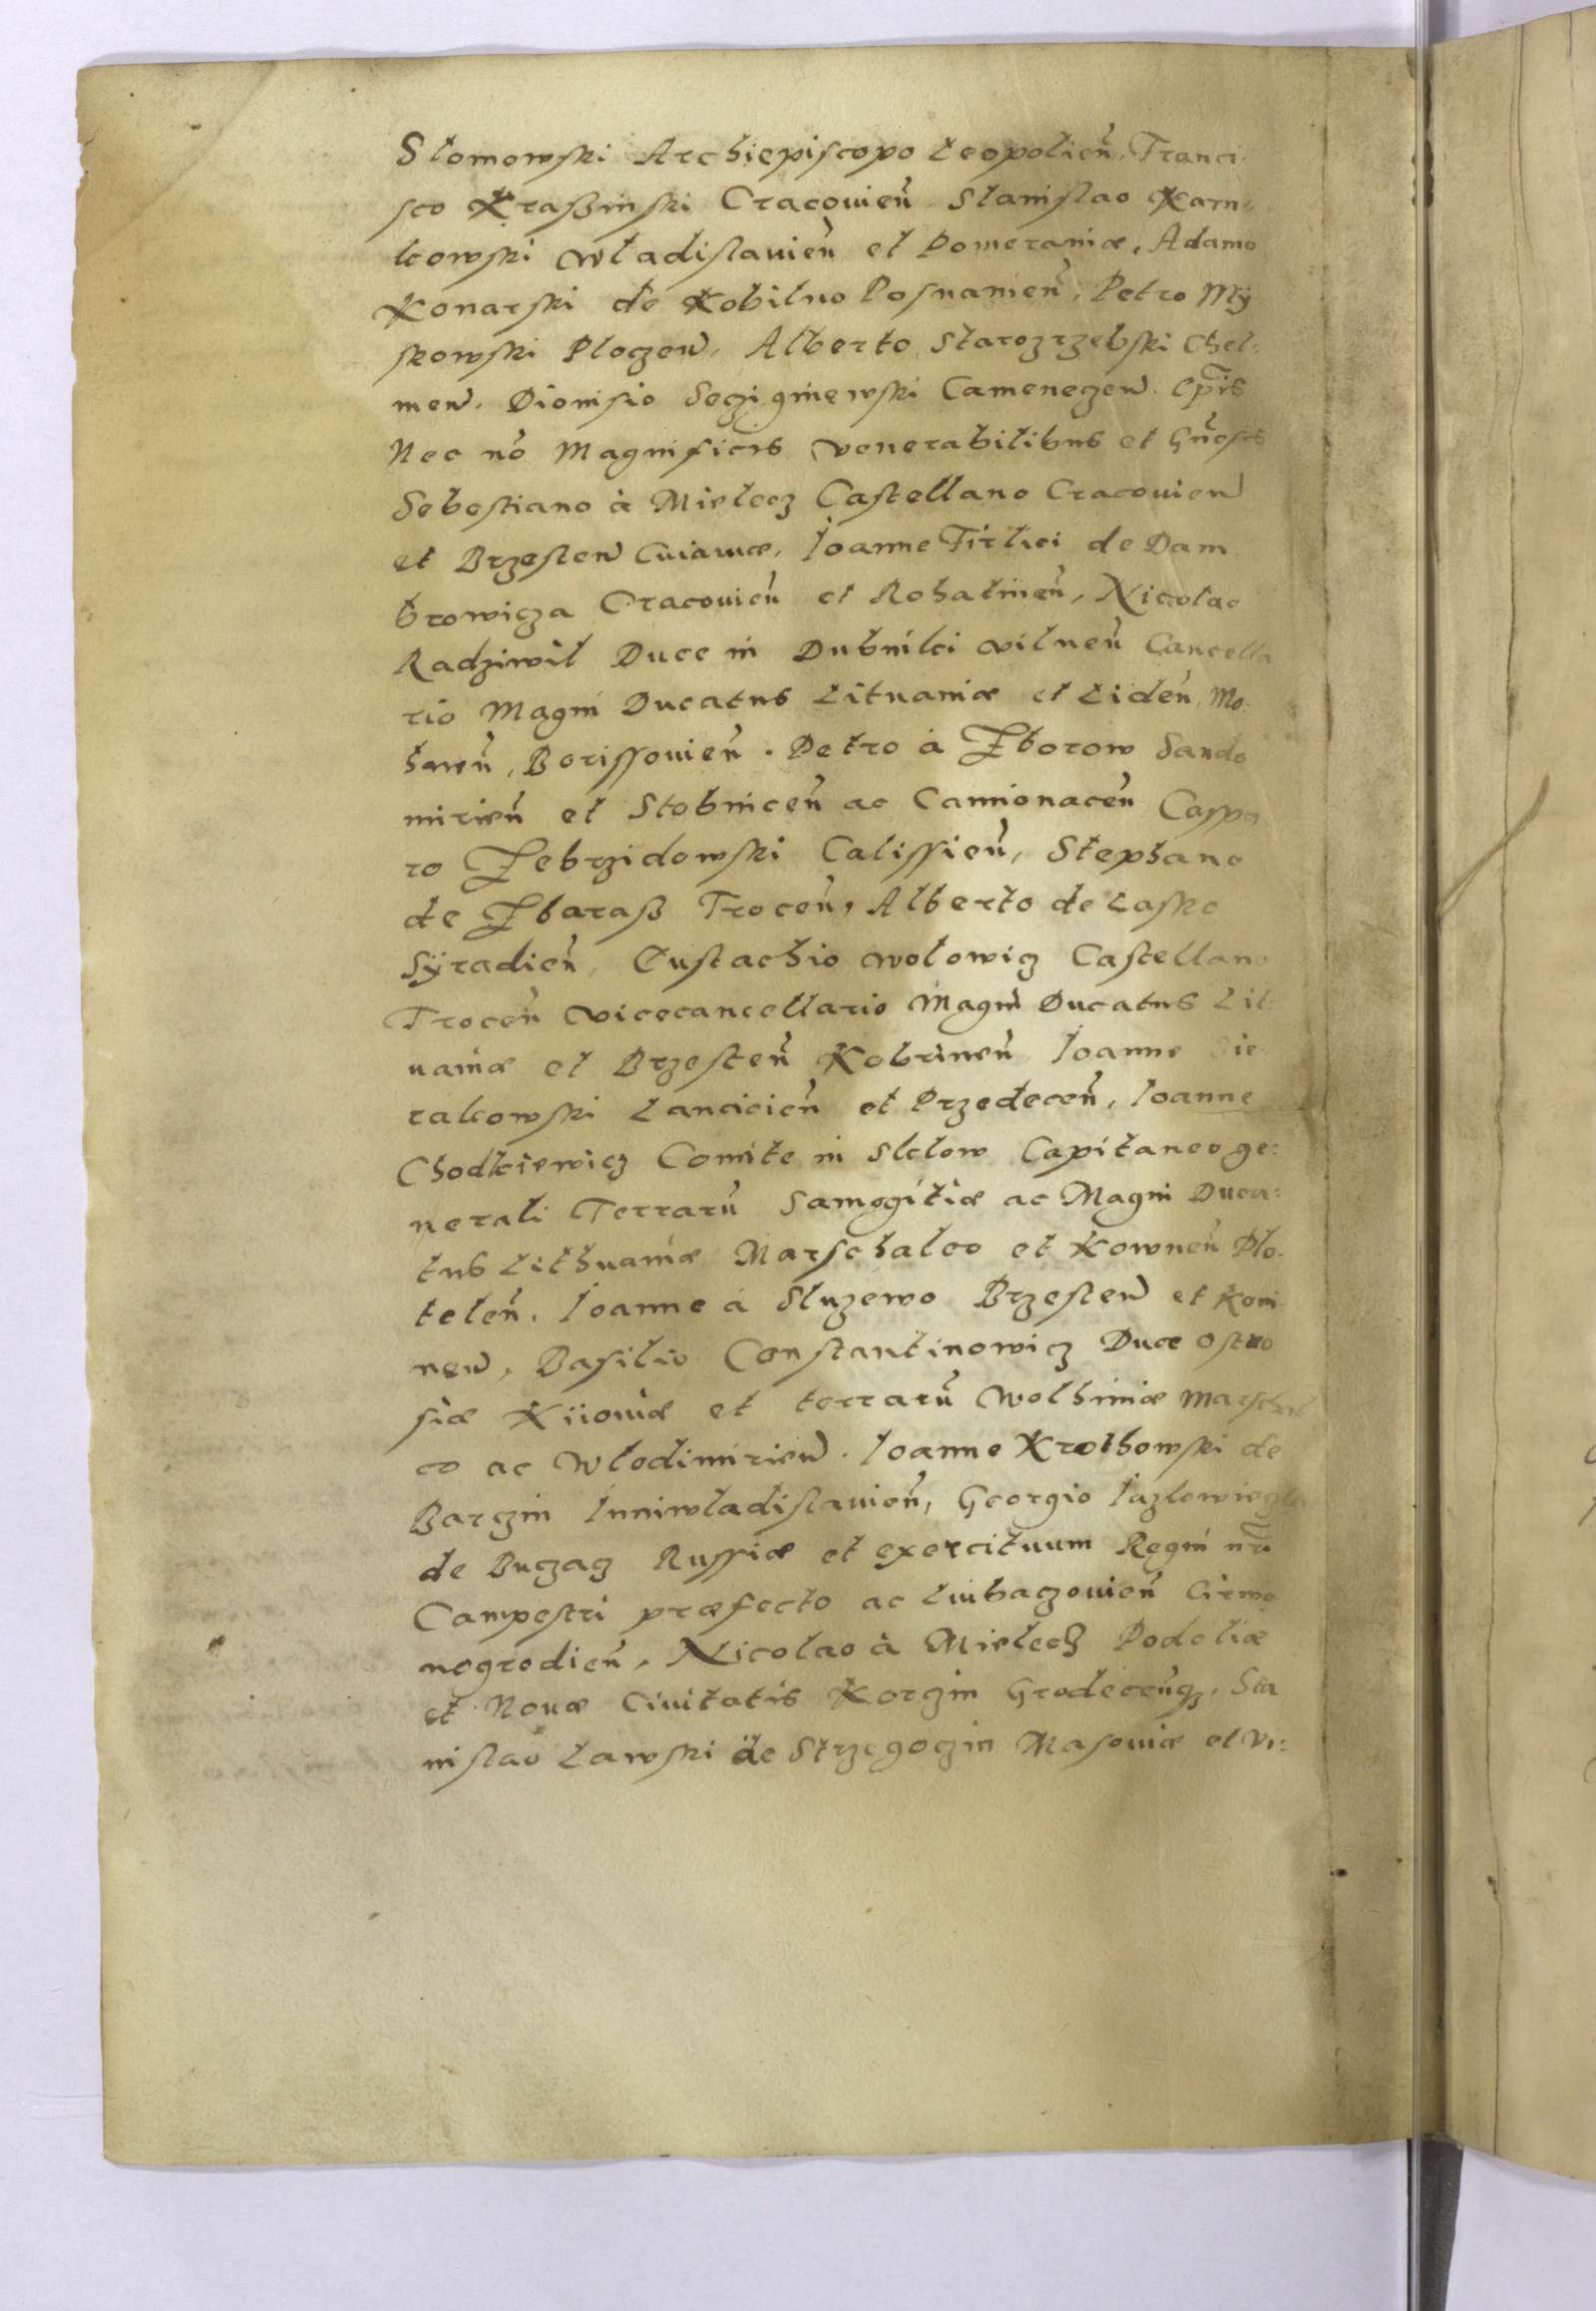 Slomowski Archiepiscopo Leopolien̄, Franci
sco Kraßinski Cracouien̄ Stanislao Karn-
kowski Wladislauien̄ et Pomeraniæ, Adamo
Konarski de Kobilno Posnanien̄, Petro Mÿ
skowski Ploczen̄, Alberto Starozrzebski Chel-
men̄. Dionisio Seczigniewski Camenezen̄. Ep̄is
Nec nō Magnificis venerabilibus et Gn̄osis
Sebestiano à Mielecz Castellano Cracouien̄
et Brzesten̄ Cuiauiæ, Joanne Firliei de Dam
browicza Cracouien̄ et Rohatinen̄, Nicolao
Radziwil Duce in Dubinki vilnen̄ Cancella
rio Magni Ducatus Lituaniæ et Liden̄ Mo-
hiren̄, Borissouien̄. Petro à Zborow Sando
mirien̄ et Stobnicen̄ ac Camionacen̄ Caspa
ro Zebrzidowski Calissien̄, Stephano
de Zbaraß Trocen̄, Alberto de Lasko
Sÿradien̄, Eustachio wolowicz Castellano
Trocen̄ vicecancellario Magni Ducatus Lit-
uaniæ et Brzesten̄ Kobrinen̄ Joanne Sie
rakowski Lancicien̄ et Przedecen̄, Joanne
Chodkiewicz Comite in Sklow Capitaneo ge:
nerali Terrarū Samogitiæ ac Magni Duca:
tus Lithuaniæ Marschalco et Kownen̄ Plo-
telen̄. Joanne à Sluzewo Brzesten̄ et Koni
nen̄, Basilio Constantinowicz Duce Ostro
siæ Kiiouiæ et terrarū Wolhiniæ Marschal
co ac Wlodimirien̄. Joanne Krothowski de
Barczin Juniwladislauien̄, Georgio Jazlowieczki
de Buczacz Russiæ et exercituum Regni nr̄i
Campestri præfecto ac Liubaczouien̄ Cirwo
nogrodien̄, Nicolao à Mielecz Podoliæ
et Nouæ Ciuitatis Korczin Grodecen̄q̨, Sta
nislao Lawski de Strzegoczin Masouiæ et Vi: